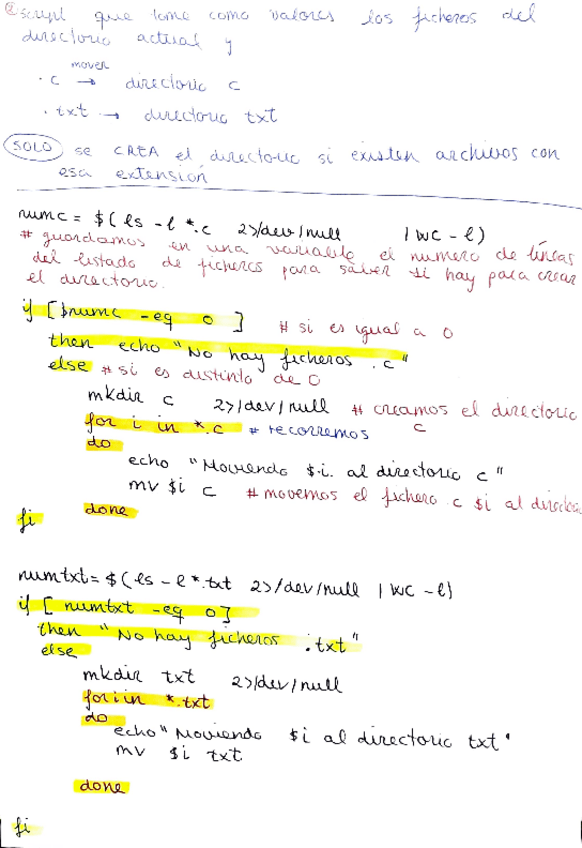 ② script que tome como valores los ficheros del
directorio actual y
mover
. c → directorio c
. txt → directorio txt
SOLO se CREA el directorio si existen archivos con
esa extensión
numc = $( ls -l *.c 2>/dev/null | wc -l)
# guardamos en una variable el numero de líneas
del listado de ficheros para saber si hay para crear
el directorio.
if [ $numc -eq 0 ] # si es igual a 0
then echo "No hay ficheros .c"
else # si es distinto de 0
mkdir c 2>/dev/null # creamos el directorio
c
for i in *.c # recorremos
do
echo "Moviendo $i. al directorio c"
mv $i c # movemos el fichero .c $i al
done
fi
numtxt= $( ls -l *.txt 2>/dev/null | wc -l)
if [ numtxt -eq 0]
then "No hay ficheros .txt"
else
mkdir txt 2>/dev/null
for i in *.txt
do
echo "Moviendo $i al directorio txt"
mv $i txt
done
fi